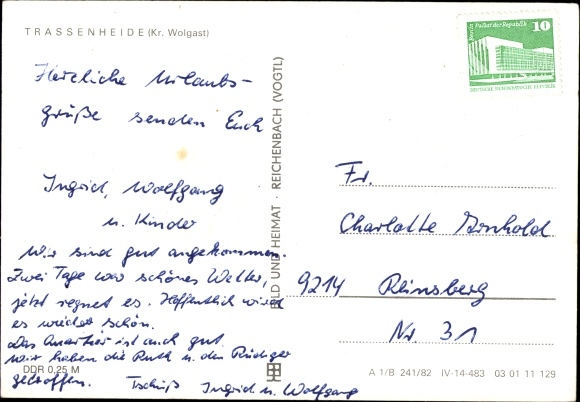 TRASSENHEIDE (Kr. Wolgast)
Herzliche Urlaubs-
grüße senden Euch
Ingrid, Wolfgang
u. Kinder
Wir sind gut angekommen.
Zwei Tage war schönes Wetter,
jetzt regnet es. Hoffentlich wird
es wieder schön.
Das Quartier ist auch gut.
Wir haben die Ruth u. den Rüdiger
getroffen. Tschüß Ingrid u. Wolfgang
DDR 0,25 M
BILD UND HEIMAT · REICHENBACH (VOGTL)
Berlin Palast der Republik 10
DEUTSCHE DEMOKRATISCHE REPUBLIK
Fr.
Charlotte Arnhold
9214 Reinsberg
Nr. 31
A 1/B 241/82 IV-14-483 03 01 11 129